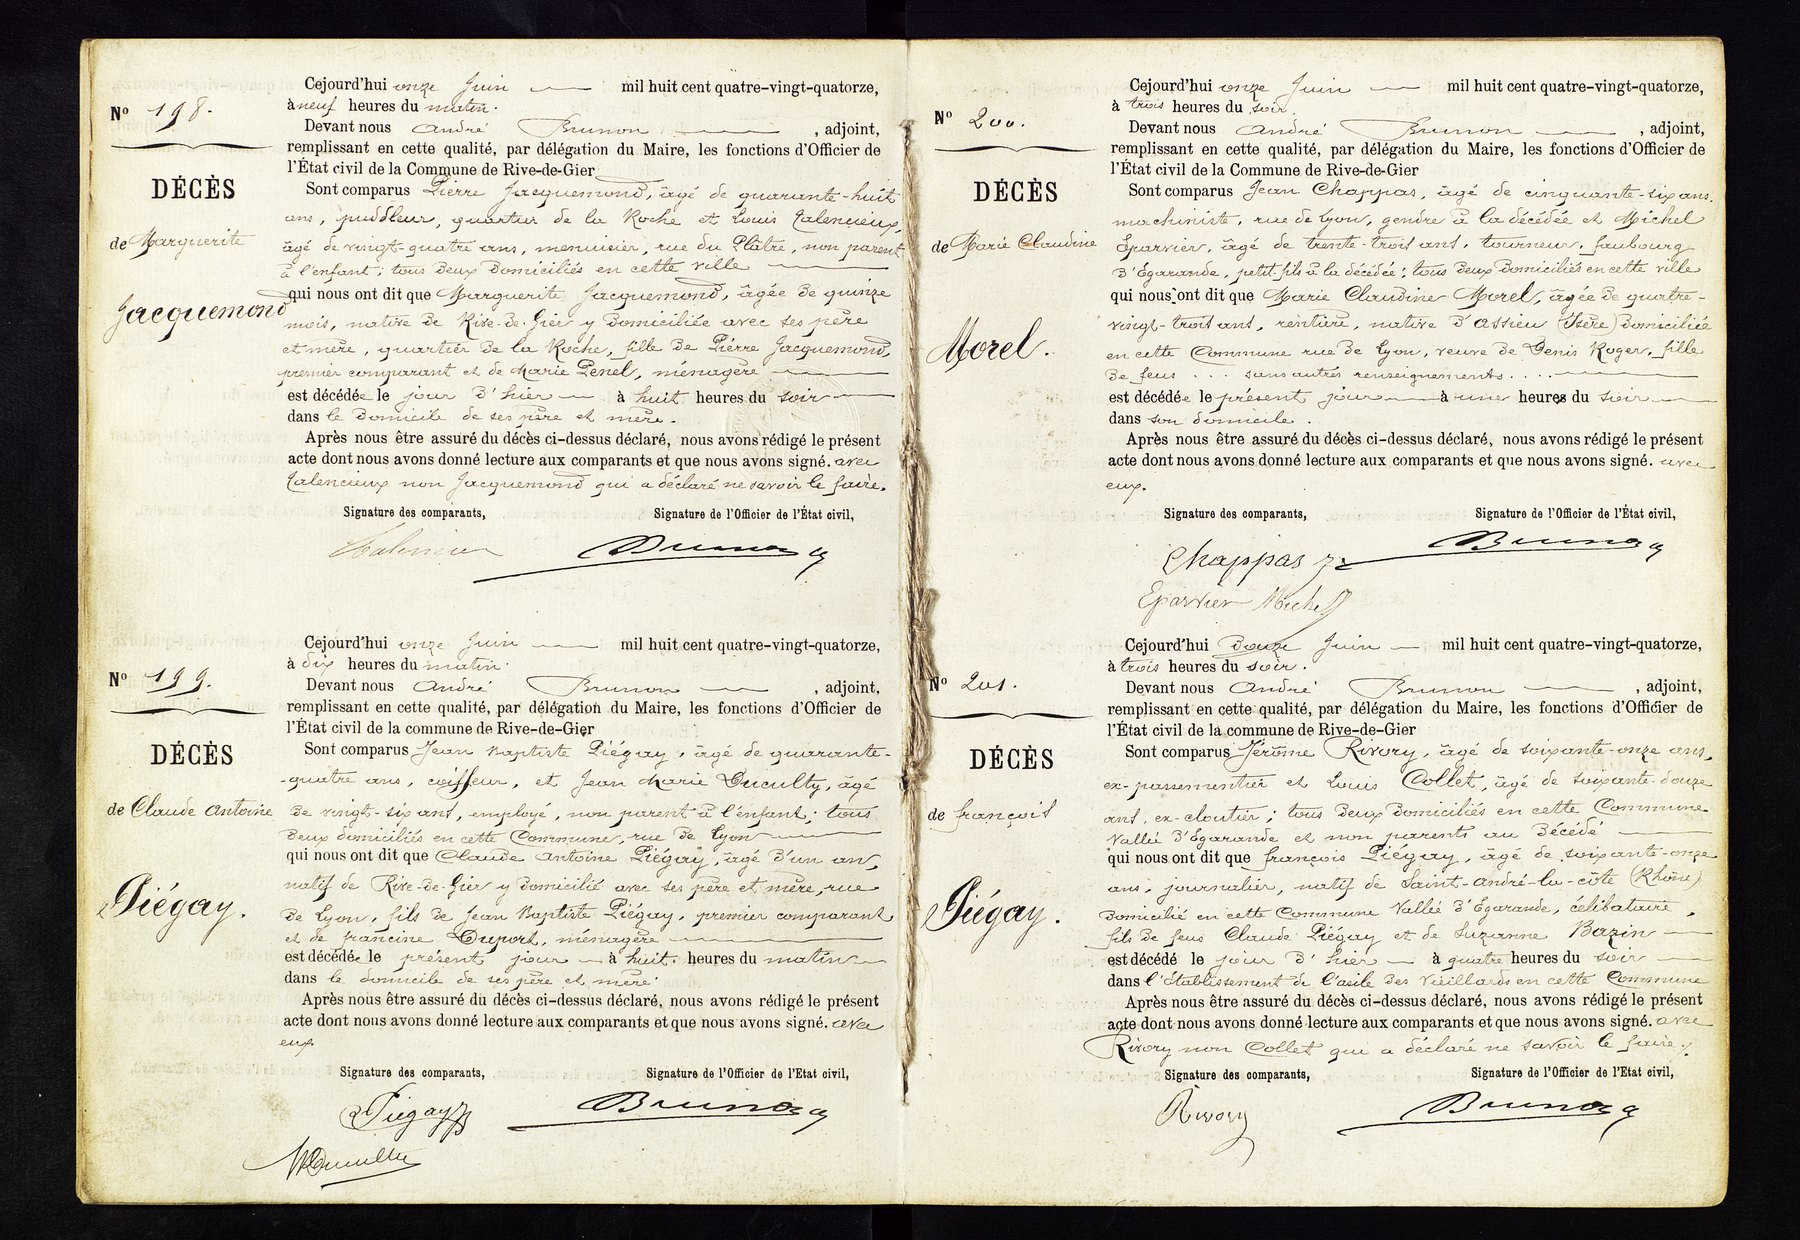 N° 198.
DÉCÈS
de Marguerite
Jacquemond
Cejourd'hui onze Juin mil huit cent quatre-vingt-quatorze,
à neuf heures du matin.
Devant nous André Brunon , adjoint,
remplissant en cette qualité, par délégation du Maire, les fonctions d'Officier de
l'État civil de la Commune de Rive-de-Gier
Sont comparus Pierre Jacquemond, âgé de quarante-huit
ans, puddleur, quartier de la Roche et Louis Valencieux,
âgé de vingt-quatre ans, menuisier, rue du Plâtre, non parent
à l'enfant; tous deux domiciliés en cette ville
qui nous ont dit que Marguerite Jacquemond, âgée de quinze
mois, native de Rive-de-Gier y domiciliée avec ses père
et mère, quartier de la Roche, fille de Pierre Jacquemond,
premier comparant et de Marie Penel, ménagère
est décédée le jour d'hier à huit heures du soir
dans le domicile de ses père et mère.
Après nous être assuré du décès ci-dessus déclaré, nous avons rédigé le présent
acte dont nous avons donné lecture aux comparants et que nous avons signé. avec
Valencieux non Jacquemond qui a déclaré ne savoir le faire.
Signature des comparants, Signature de l'Officier de l'État civil,
Brunon
N° 199.
DÉCÈS
de Claude Antoine
Piégay.
Cejourd'hui onze Juin mil huit cent quatre-vingt-quatorze,
à dix heures du matin.
Devant nous André Brunon , adjoint,
remplissant en cette qualité, par délégation du Maire, les fonctions d'Officier de
l'État civil de la commune de Rive-de-Gier
Sont comparus Jean Baptiste Piégay, âgé de quarante-
-quatre ans, coiffeur, et Jean Marie Ducultty, âgé
de vingt-six ans, employé, non parent à l'enfant; tous
deux domiciliés en cette Commune, rue de Lyon
qui nous ont dit que Claude Antoine Piégay, âgé d'un an,
natif de Rive-de-Gier y domicilié avec ses père et mère, rue
de Lyon, fils de Jean Baptiste Piégay, premier comparant
et de francine Duport, ménagère
est décédée le présent jour à huit heures du matin
dans le domicile de ses père et mère.
Après nous être assuré du décès ci-dessus déclaré, nous avons rédigé le présent
acte dont nous avons donné lecture aux comparants et que nous avons signé. avec
eux.
Signature des comparants, Signature de l'Officier de l'Etat civil,
Piegay Brunon
N° 200.
DÉCÈS
de Marie Claudine
Morel.
Cejourd'hui onze Juin mil huit cent quatre-vingt-quatorze,
à trois heures du soir.
Devant nous André Brunon , adjoint,
remplissant en cette qualité, par délégation du Maire, les fonctions d'Officier de
l'État civil de la Commune de Rive-de-Gier
Sont comparus Jean Chappas, âgé de cinquante-six ans,
machiniste, rue de Lyon, gendre à la décédée et Michel
Eparvier, âgé de trente-trois ans, tourneur, faubourg
d'Egarande, petit-fils à la décédée; tous deux domiciliés en cette ville
qui nous ont dit que Marie Claudine Morel, âgée de quatre-
vingt-trois ans, rentière, native d'Assieu (Isère) domiciliée
en cette Commune rue de Lyon, veuve de Denis Roger, fille
de feus . . . sans autres renseignements . . . .
est décédée le présent jour à une heure du soir
dans son domicile.
Après nous être assuré du décès ci-dessus déclaré, nous avons rédigé le présent
acte dont nous avons donné lecture aux comparants et que nous avons signé. avec
eux.
Signature des comparants, Signature de l'Officier de l'État civil,
Chappas Brunon
Eparvier Michel
N° 201.
DÉCÈS
de françois
Piégay.
Cejourd'hui Douze Juin mil huit cent quatre-vingt-quatorze,
à trois heures du soir.
Devant nous André Brunon , adjoint,
remplissant en cette qualité, par délégation du Maire, les fonctions d'Officier de
l'État civil de la commune de Rive-de-Gier
Sont comparus Jérôme Rivory, âgé de soixante-onze ans,
ex-passementier et Louis Collet, âgé de soixante-douze
ans, ex-cloutier; tous deux domiciliés en cette Commune
Vallée d'Egarande et non parents au décédé
qui nous ont dit que françois Piégay, âgé de soixante-onze
ans, journalier, natif de Saint-André-la-côte (Rhône)
domicilié en cette Commune Vallée d'Egarande, célibataire,
fils de feus Claude Piégay et de Suzanne Bazin
est décédé le jour d'hier à quatre heures du soir
dans l'établissement de l'asile des Vieillards en cette Commune
Après nous être assuré du décès ci-dessus déclaré, nous avons rédigé le présent
acte dont nous avons donné lecture aux comparants et que nous avons signé. avec
Rivory non Collet qui a déclaré ne savoir le faire.
Signature des comparants, Signature de l'Officier de l'Etat civil,
Rivory Brunon